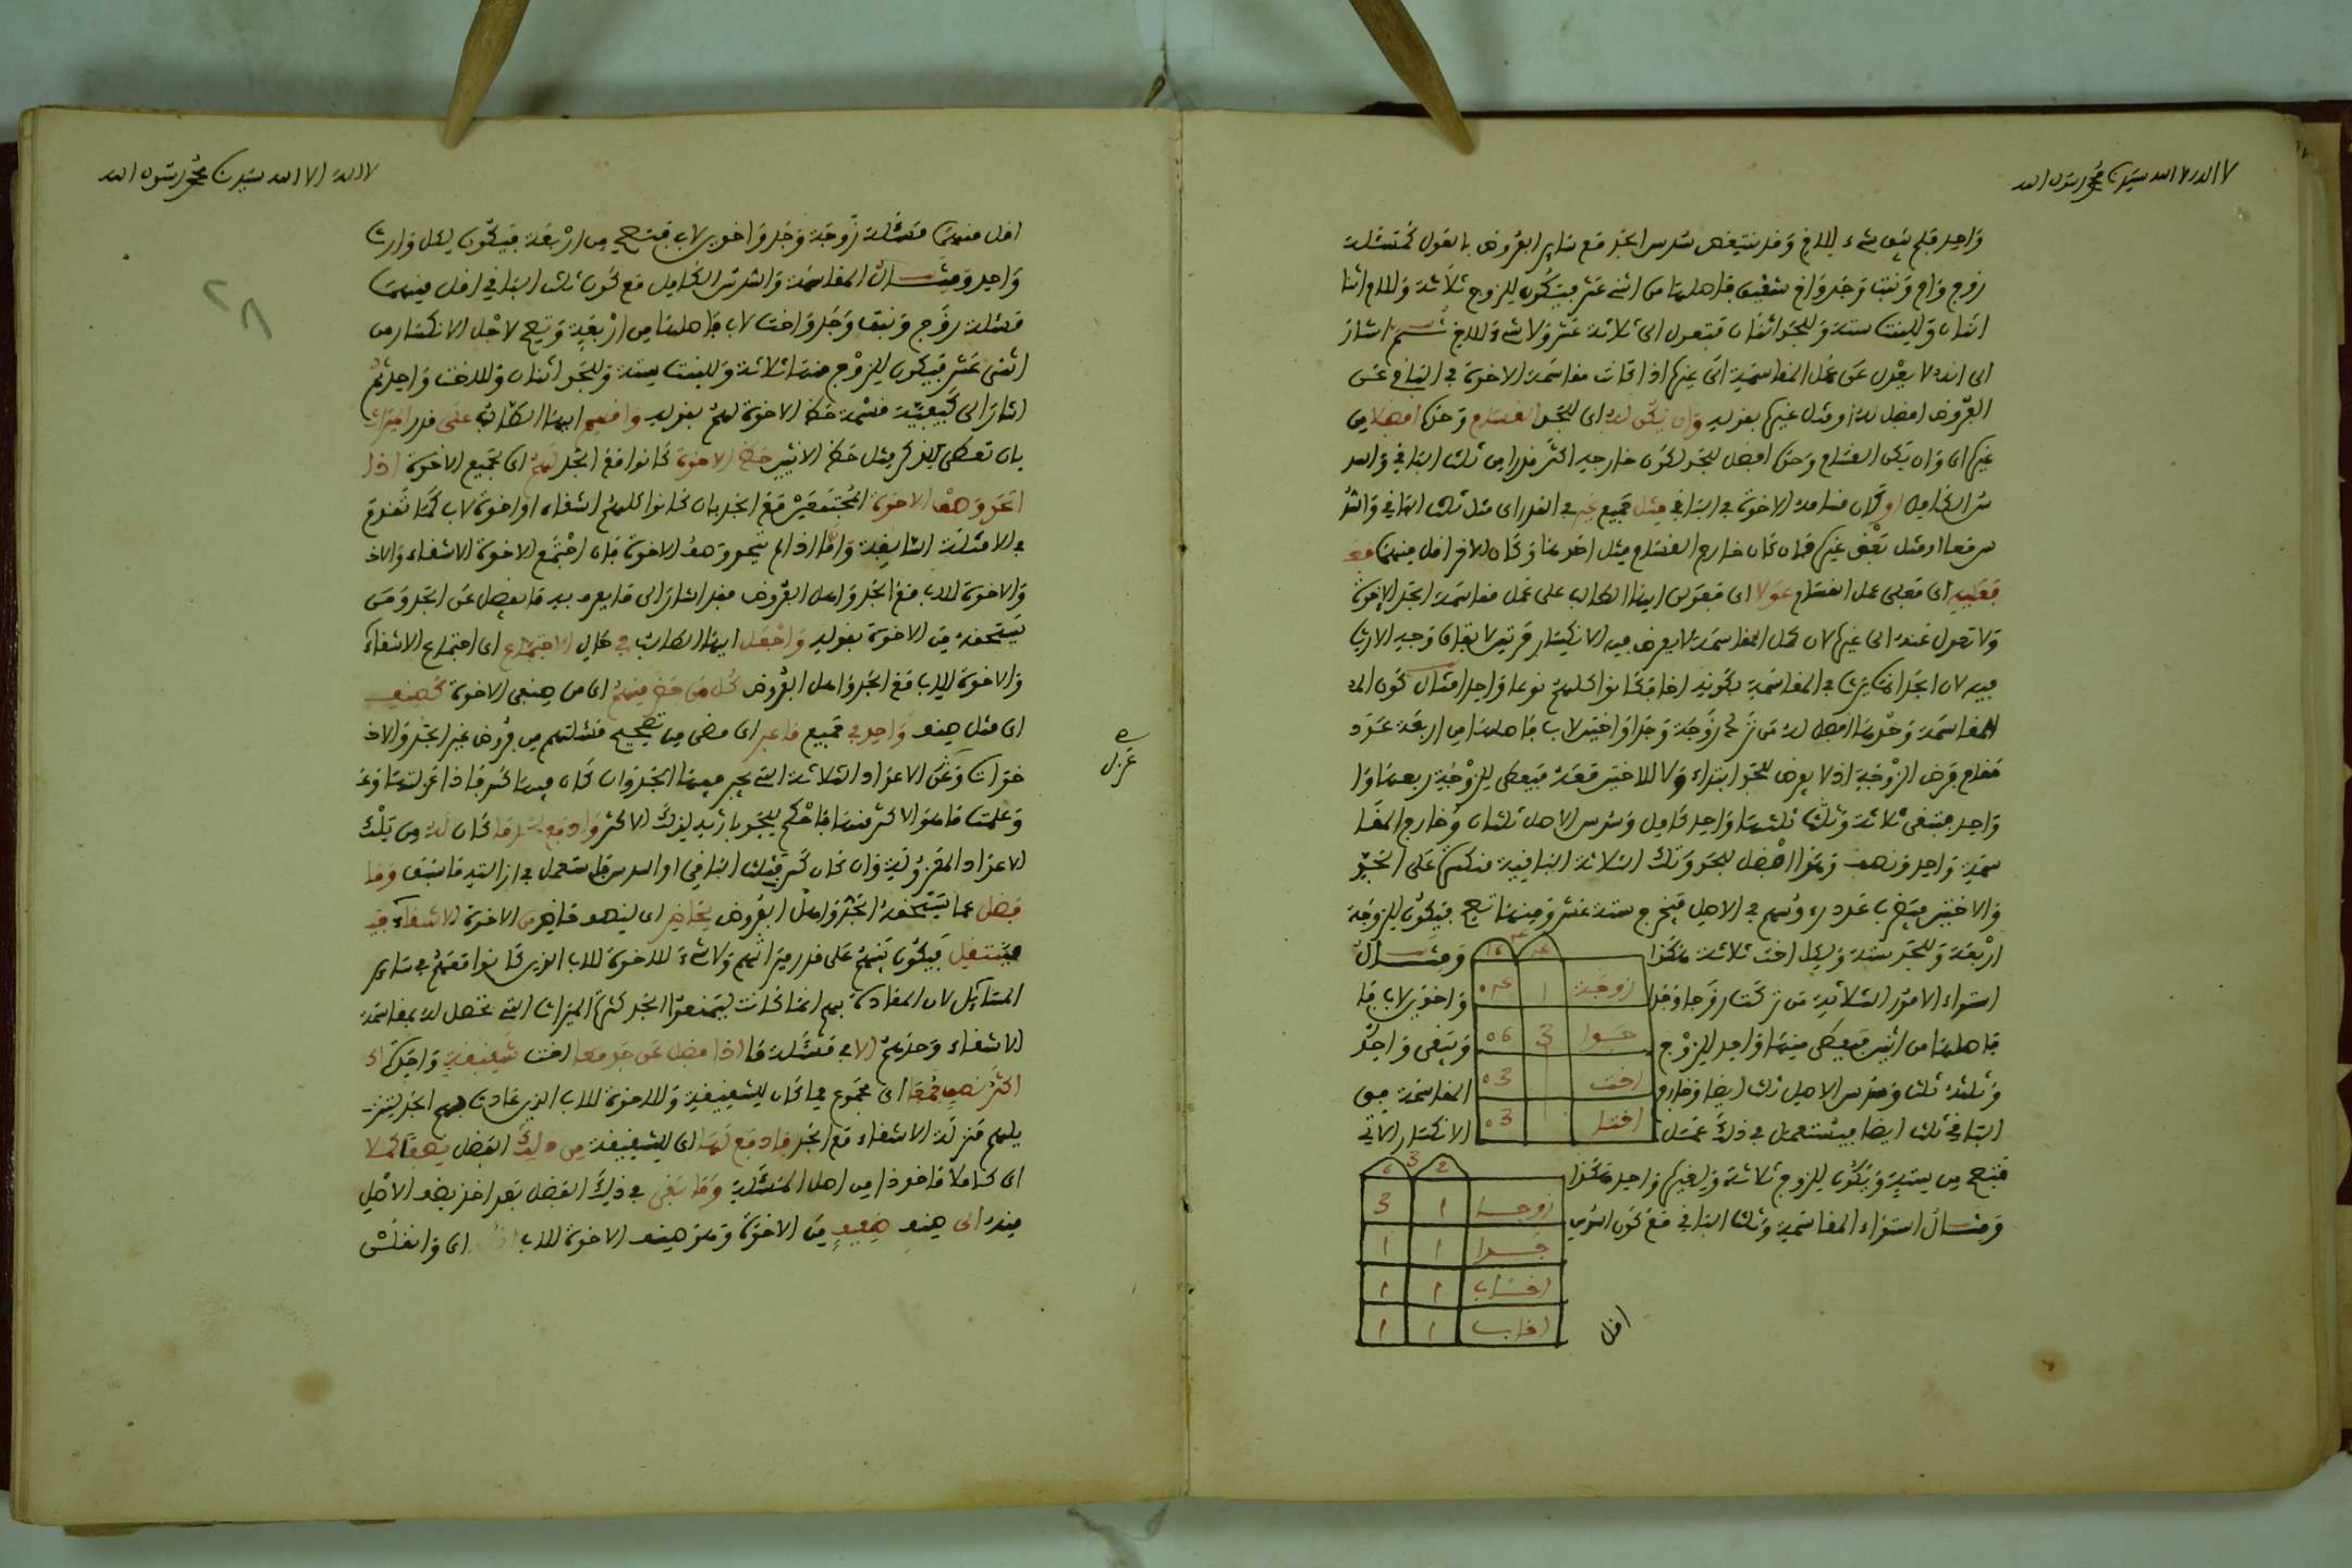 لا اله الا الله سيدنا محمد رسول الله
واحد فلم يبق شيء للاخ وقد ينتقص سدس الجد مع ساير الفروض بالعول كمسئلة
زوج وام وبنت وجد واخ شقيق فاصلها من اثنى عشر فيكون للزوج ثلاثة وللام اثنا
اثنان وللبنت ستة وللجد اثنان فتعول الى ثلاثة عشر ولا شيء للاخ ثم اشار
الى انه لا يعدل عن عمل المقاسمة الى غيرها اذا كانت مقاسمة الاخوة في الباقي عن
الفروض افضل له او مثل غيرها بقوله وان يكن له اى للجد القسام وحدها افضلا من
غيرها اى وان يكن القسام وحدها افضل للجد لكون خارجه اكثر قدرا من ثلث الباقي والسد
س الكامل او كان مقاسمة الاخوة في الباقي مثل جميع غيره في القدر اى مثل ثلث الباقي والسد
س معا او مثل بعض غيرها فان كان خارج القسام مثل احدهما وكان الاخر اقل منهما
فعليه اى فعلى عمل القسام عولا اى فعولن ايها الطالب على عمل مقاسمة الجد الاخوة
ولا تعول عنه الى غيرها لان عمل المقاسمة لا يعرض فيه الانكسار مرتين لاتفاق وجه الارث
فيه لان الجد انما يرث في المقاسمة بكونه اخا فكانوا كلهم نوعا واحدا مثال كون
المقاسمة وحدها افضل له من ترك زوجة وجدا واختين لاب فاصلها من اربعة عدد
مقام فرض الزوجة اذ لا يفرض للجد ابتداء ولا للاختين معه فيعطى للزوجة ربعها
واحد فتبقى ثلاثة وثلث ثلثها واحد كامل وسدس الاصل ثلثان وخارج المقا
سمة واحد ونصف وهو افضل للجد وتلك الثلاثة الباقية منكسرة على الجد
والاختين فتضرب عدد رءوسهم في الاصل فتخرج ستة عشر ومنها تصح فيكون للزوجة
اربعة وللجد ستة ولكل اخت ثلاثة هكذا ومثال
استواء الامور الثلاثة من تركت زوجا وجدا واخوين لاب فا
فاصلها من اثنين فيعطى منها واحد للزوج ويبقى واحد
وثلثه ثلث وسدس الاصل ثلث ايضا وخارج المقاسمة في
الباقي ثلث ايضا فيستعمل في ذلك عمل الانكسار الاتي
زوجة 1 04
جدا 3 06
اخت 03
اختا 03
فتصح من ستة ويكون للزوج ثلاثة ولغيره واحد هكذا
ومثال استواء المقاسمة وثلث الباقي مع كون السدس
2 6
زوجا 1 3
جدا 1 1
اخ لاب 1 1
اخ لاب 1 1
اقل
لا اله الا الله سيدنا محمد رسول الله
28
اقل منهما مسئلة زوجة وجد واخوين لاب فتصح من اربعة فيكون لكل وارث
واحد ومثال المقاسمة والسدس الكامل مع كون ثلث الباقي اقل منهما
مسئلة زوج وبنت وجد واخت لاب فاصلها من اربعة وتصح لاجل الانكسار من
اثنى عشر فيكون للزوج منها ثلاثة وللبنت ستة وللجد اثنان وللاخت واحد ثم
اشار الى كيفية قسمة حظ الاخوة لهم بقوله واقسم ايها الطالب على قدر الميراث
بان تعطى للذكر مثل حظ الانثيين حظ الاخوة كانوا مع الجد لهم اى لجميع الاخوة اذا
اتحد وصف الاخوة المجتمعين مع الجد بان كانوا كلهم اشقاء او اخوة لاب كما تقدم
في الامثلة السابقة واما اذا لم يتحد وصف الاخوة فان اجتمع الاخوة الاشقاء والاخ
والاخوة للاب مع الجد واهل الفروض فقد اشار الى ما يعرف به ما يفضل عن الجد ومن
يستحقه من الاخوة بقوله واجعل ايها الطالب في حال الاجتماع اى اجتماع الاشقاء
والاخوة للاب مع الجد واهل الفروض كل من حضر منهم اى من صنفى الاخوة كصنف
اى مثل صنف واحد في جميع ما غبر اى مضى من تصحيح مسئلتهم من فروض غير الجد والاخ
خوات وعن الاعداد الثلاثة التي يجبر فيها الجد وان كان فيها كسر فاذا عزلتها
وعلمت ما هو الاكثر منها فاحكم للجد بارثه لذلك الاكثر وادفع له ما كان له من تلك
الاعداد المعزولة وان كان كسر فثلث الباقي او السدس فاستعمل في ازالته ما سبق وما
فضل عما يستحقه الجد واهل الفروض يحاضر اى لينصف حاضر من الاخوة الاشقاء
فينتقل فيكون بينهم على قدر ميراثهم ولا شيء للاخوة للاب الذين كانوا معهم في ساير
المسايل لان المعادة بهم انما كانت ليمنعوا الجد كثرة الميراث التي تحصل له بمقاسمة
الاشقاء وحدهم الا في مسئلة ما اذا فضل عن جد معه اخت شقيقة واحدة
اكثر نصف جمعا اى مجموع ما كان للشقيقة وللاخوة للاب الذين عادت بهم الجد لتنز
يلهم منزلة الاشقاء مع الجد فادفع لها اى للشقيقة من ذلك الفضل نصفا كملا
اى كاملا ماخوذا من اصل المسئلة وما بقى في ذلك الفضل بعد اخذ نصف الاصل
منه الى صنف ضعيف من الاخوة وهو صنف الاخوة للاب اى وانقلن
عزل